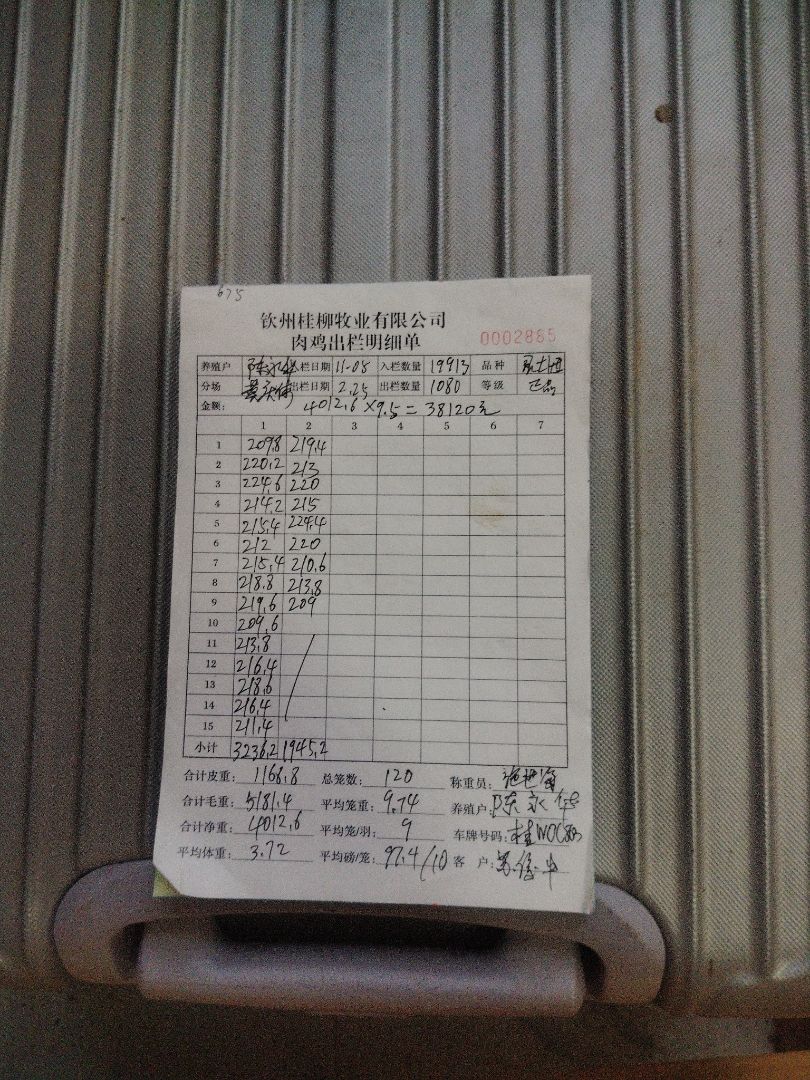 675
钦州桂柳牧业有限公司
肉鸡出栏明细单 0002885
养殖户 陈永华 入栏日期 11-08 入栏数量 19913 品种
分场 出栏日期 2.25 出栏数量 1080 等级 正品
金额: 4012.6×9.5=38120元
1 2 3 4 5 6 7
1 209.8 219.4
2 220.2 213
3 224.6 220
4 214.2 215
5 215.4 224.4
6 212 220
7 215.4 210.6
8 218.8 213.8
9 219.6 209
10 209.6
11 213.8
12 216.4
13 218.6
14 216.4
15 211.4
小计 3236.2 1945.2
合计皮重: 1168.8 总笼数: 120 称重员:
合计毛重: 5181.4 平均笼重: 9.74 养殖户: 陈永华
合计净重: 4012.6 平均笼/羽: 9 车牌号码:
平均体重: 3.72 平均磅/笼: 97.4/10 客户: